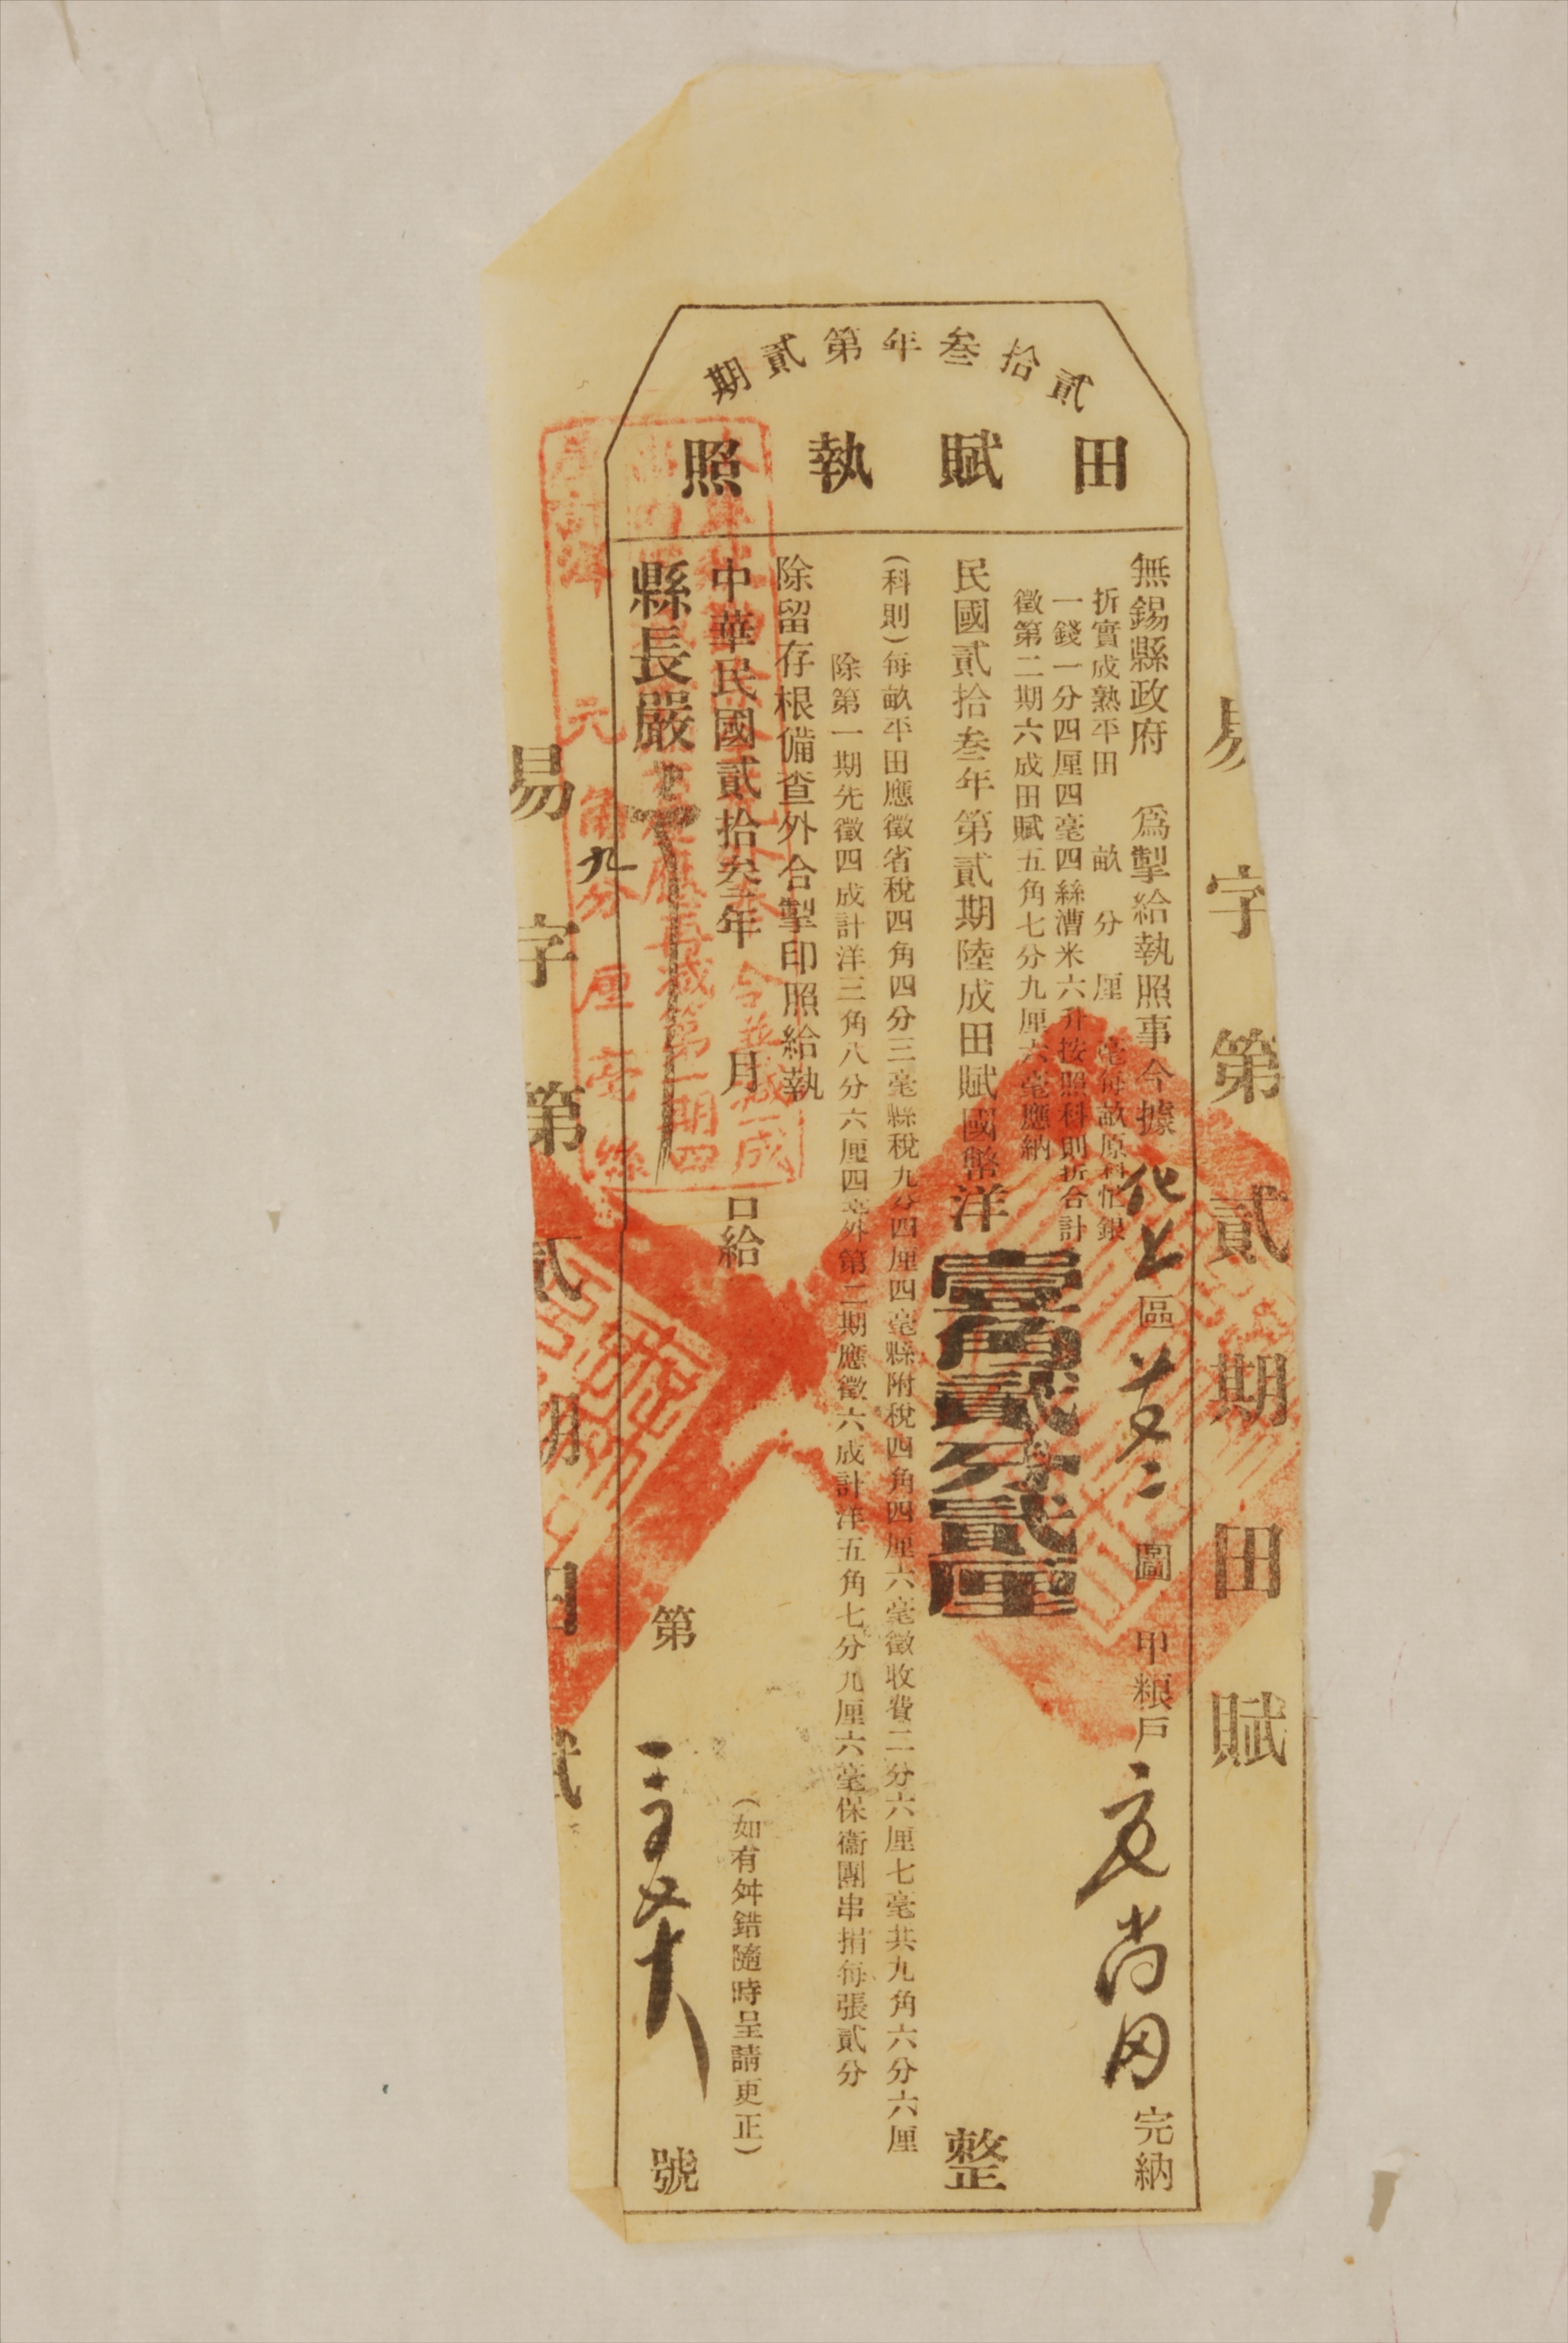 易字第貳期田賦
貳拾叁年第貳期
田賦執照
無錫縣政府 爲掣給執照事今據化上區 二圖 甲粮戶 尚 完納
折實成熟平田 畝 分 厘 毫每畝原科忙銀
一錢一分四厘四毫四絲漕米六升按照科則折合計
徵第二期六成田賦五角七分九厘六毫應納
民國貳拾叁年第貳期陸成田賦國幣洋壹角貳分貳厘整
(科則)每畝平田應徵省稅四角四分三毫縣稅九分四厘四毫縣附稅四角四厘六毫徵收費二分六厘七毫共九角六分六厘
除第一期先徵四成計洋三角八分六厘四毫外第二期應徵六成計洋五角七分九厘六毫保衞團串捐每張貳分
除留存根備查外合掣印照給執
中華民國貳拾叁年 月 日給
(如有舛錯隨時呈請更正)
縣長嚴
第 號
合並減一成
應再減第一期四
元 角九分 厘 毫 絲
易字第貳期田賦